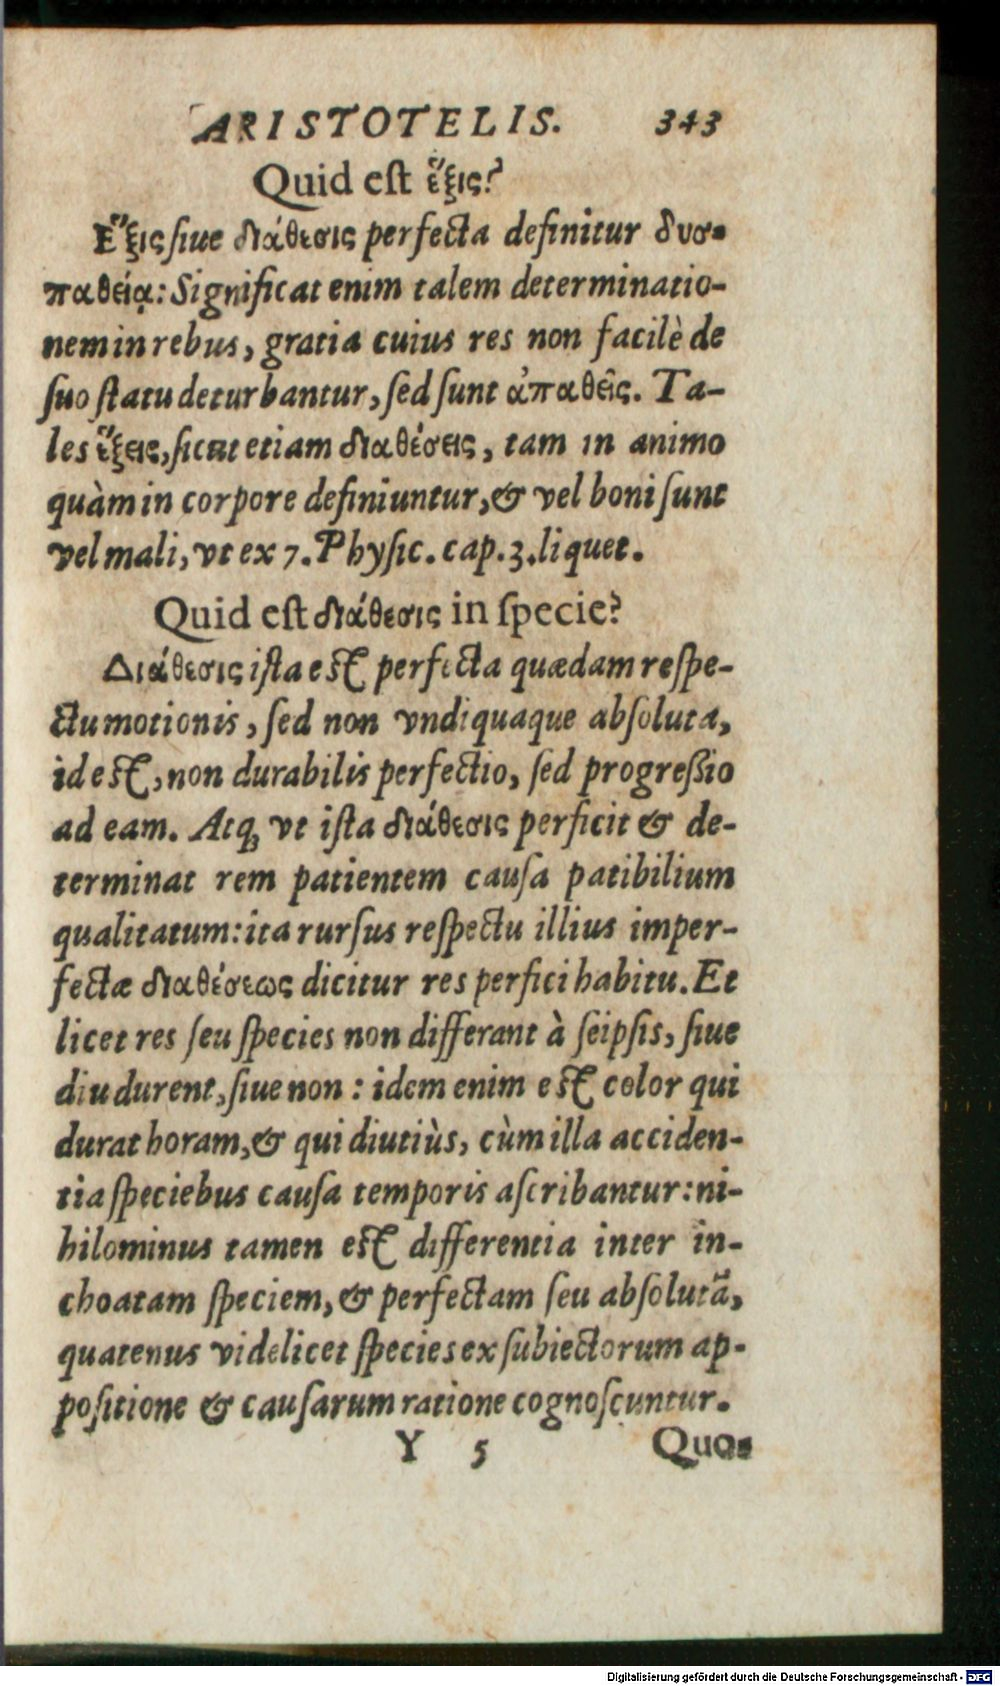 ARISTOTELIS. 343
Quid est ἕξις?
Ἕξις siue διάθεσις perfecta definitur δυσ-
παθείᾳ: Significat enim talem determinatio-
nem in rebus, gratia cuius res non facilè de
suo statu deturbantur, sed sunt ἀπαθεῖς. Ta-
les ἕξεις, sicut etiam διαθέσεις, tam in animo
quàm in corpore definiuntur, & vel boni sunt
vel mali, vt ex 7. Physic. cap. 3. liquet.
Quid est διάθεσις in specie?
Διάθεσις ista est perfecta quædam respe-
ctu motionis, sed non vndiquaque absoluta,
id est, non durabilis perfectio, sed progressio
ad eam. Atq; vt ista διάθεσις perficit & de-
terminat rem patientem causa patibilium
qualitatum: ita rursus respectu illius imper-
fectæ διαθέσεως dicitur res perfici habitu. Et
licet res seu species non differant à seipsis, siue
diu durent, siue non: idem enim est color qui
durat horam, & qui diutiùs, cùm illa acciden-
tia speciebus causa temporis ascribantur: ni-
hilominus tamen est differentia inter in-
choatam speciem, & perfectam seu absolutã,
quatenus videlicet species ex subiectorum ap-
positione & causarum ratione cognoscuntur.
Y 5 Quo-
Digitalisierung gefördert durch die Deutsche Forschungsgemeinschaft - DFG